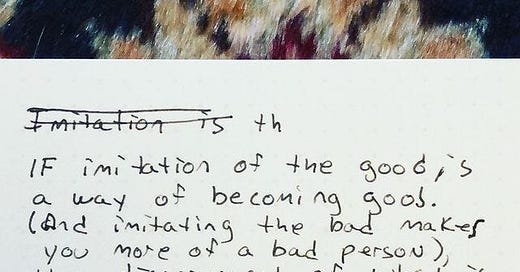 Imitation is th
IF imitation of the good, is
a way of becoming good.
(And imitating the bad makes
you more of a bad person),